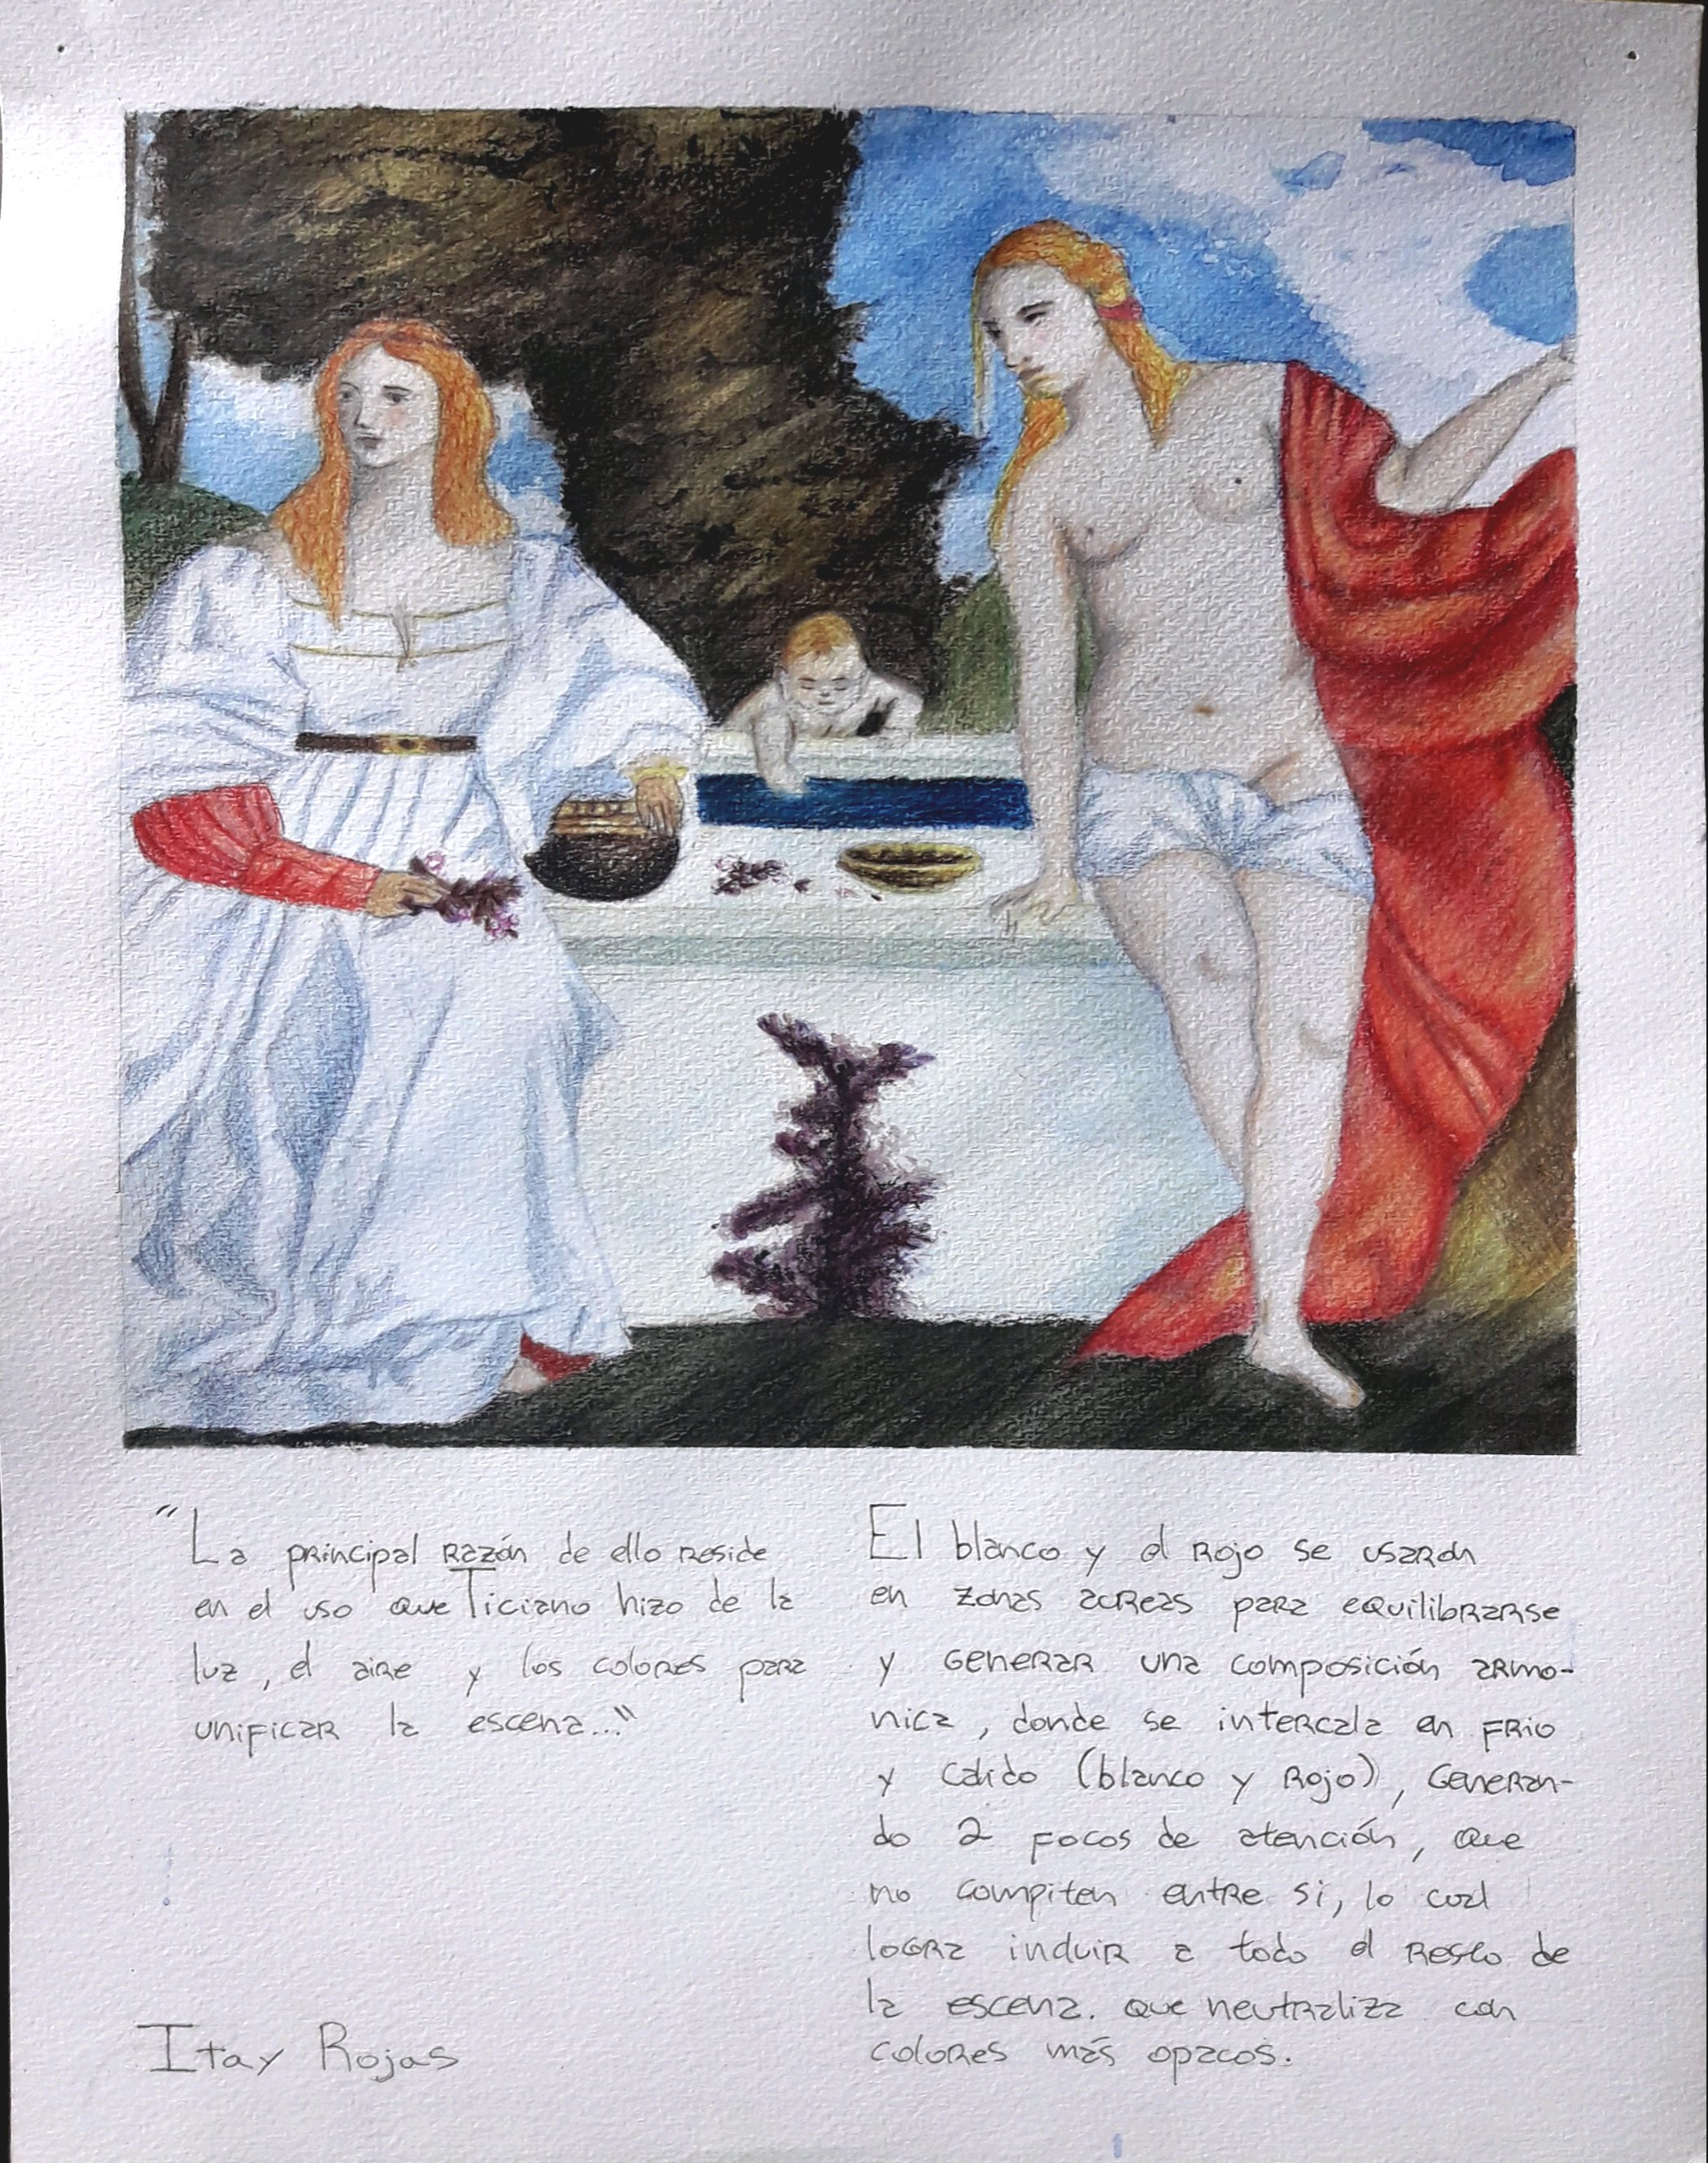 "La principal razón de ello reside
en el uso que Ticiano hizo de la
luz, el aire y los colores para
unificar la escena..."
Itay Rojas
El blanco y el rojo se usaron
en zonas aereas para equilibrarse
y generar una composición armo-
nica, donde se intercala en frio
y calido (blanco y rojo), generan-
do 2 focos de atención, que
no compiten entre si, lo cual
logra incluir a todo el resto de
la escena. que neutraliza con
colores más opacos.